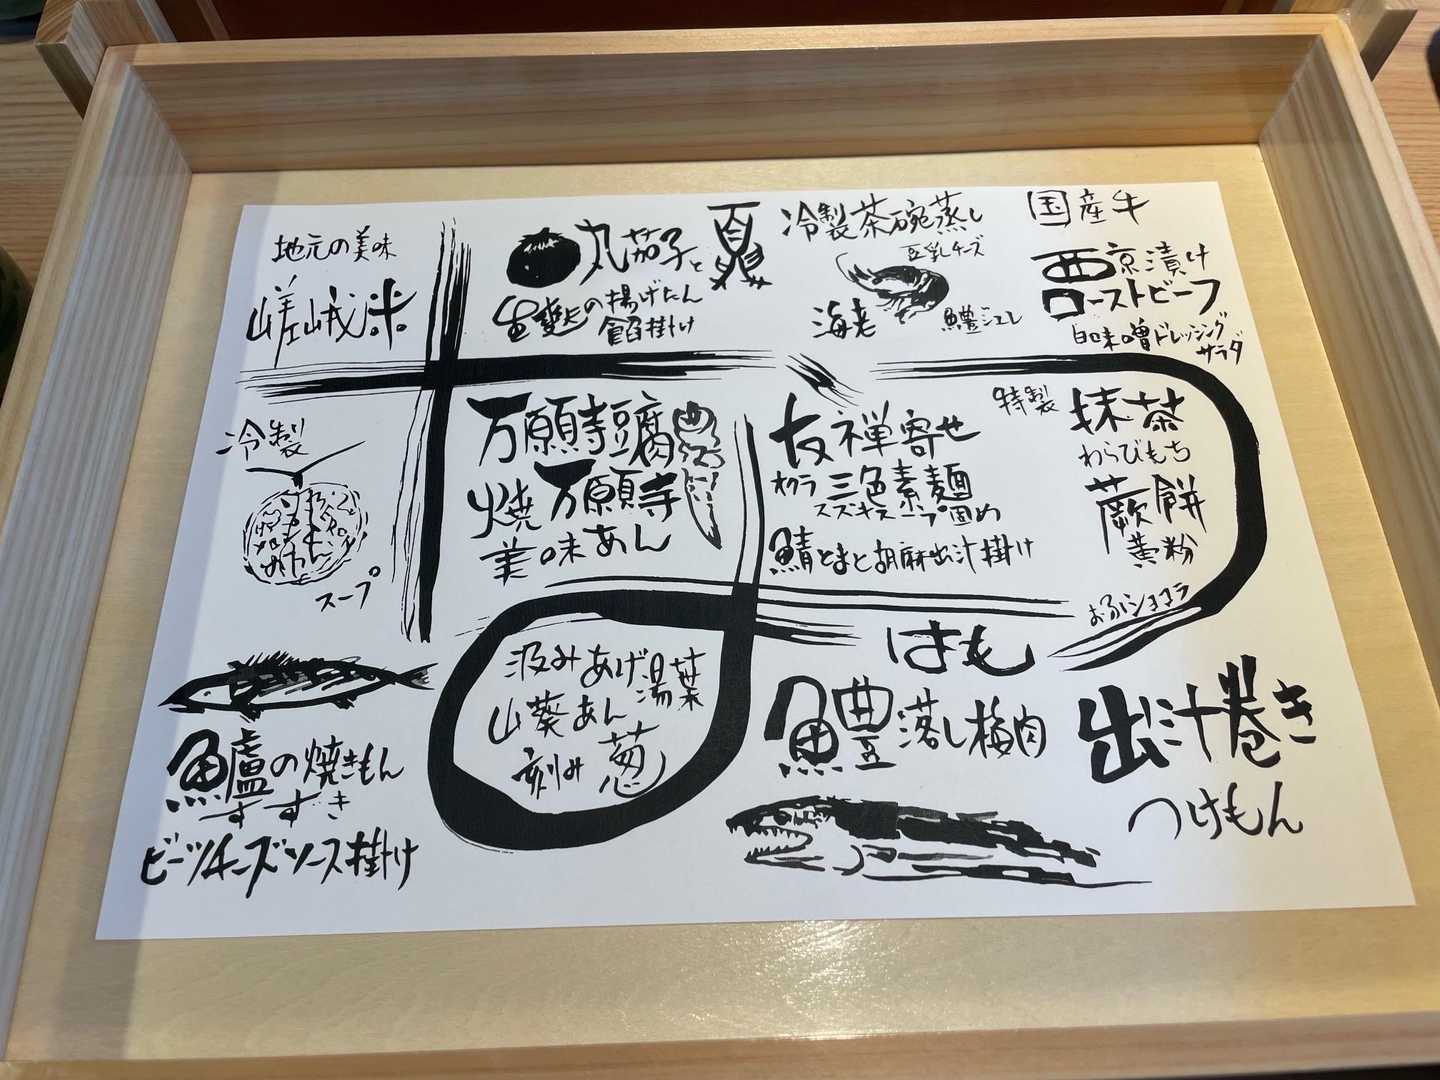 地元の美味
嵯峨米
丸茄子と夏
生麩の揚げたん
餡掛け
冷製茶碗蒸し
豆乳チーズ
海老
鱧ジュレ
国産牛
西京漬け
ローストビーフ
白味噌ドレッシング
サラダ
冷製
スープ
万願寺豆腐
焼万願寺
美味あん
友禅寄せ
オクラ 三色素麺
スズキスープ固め
鯖とまと胡麻出汁掛け
特製 抹茶
わらびもち
蕨餅
黄粉
おふショコラ
汲みあげ湯葉
山葵あん
刻み葱
鱸の焼きもん
すずき
ビーツチーズソース掛け
はも
鱧落し梅肉
出汁巻き
つけもん